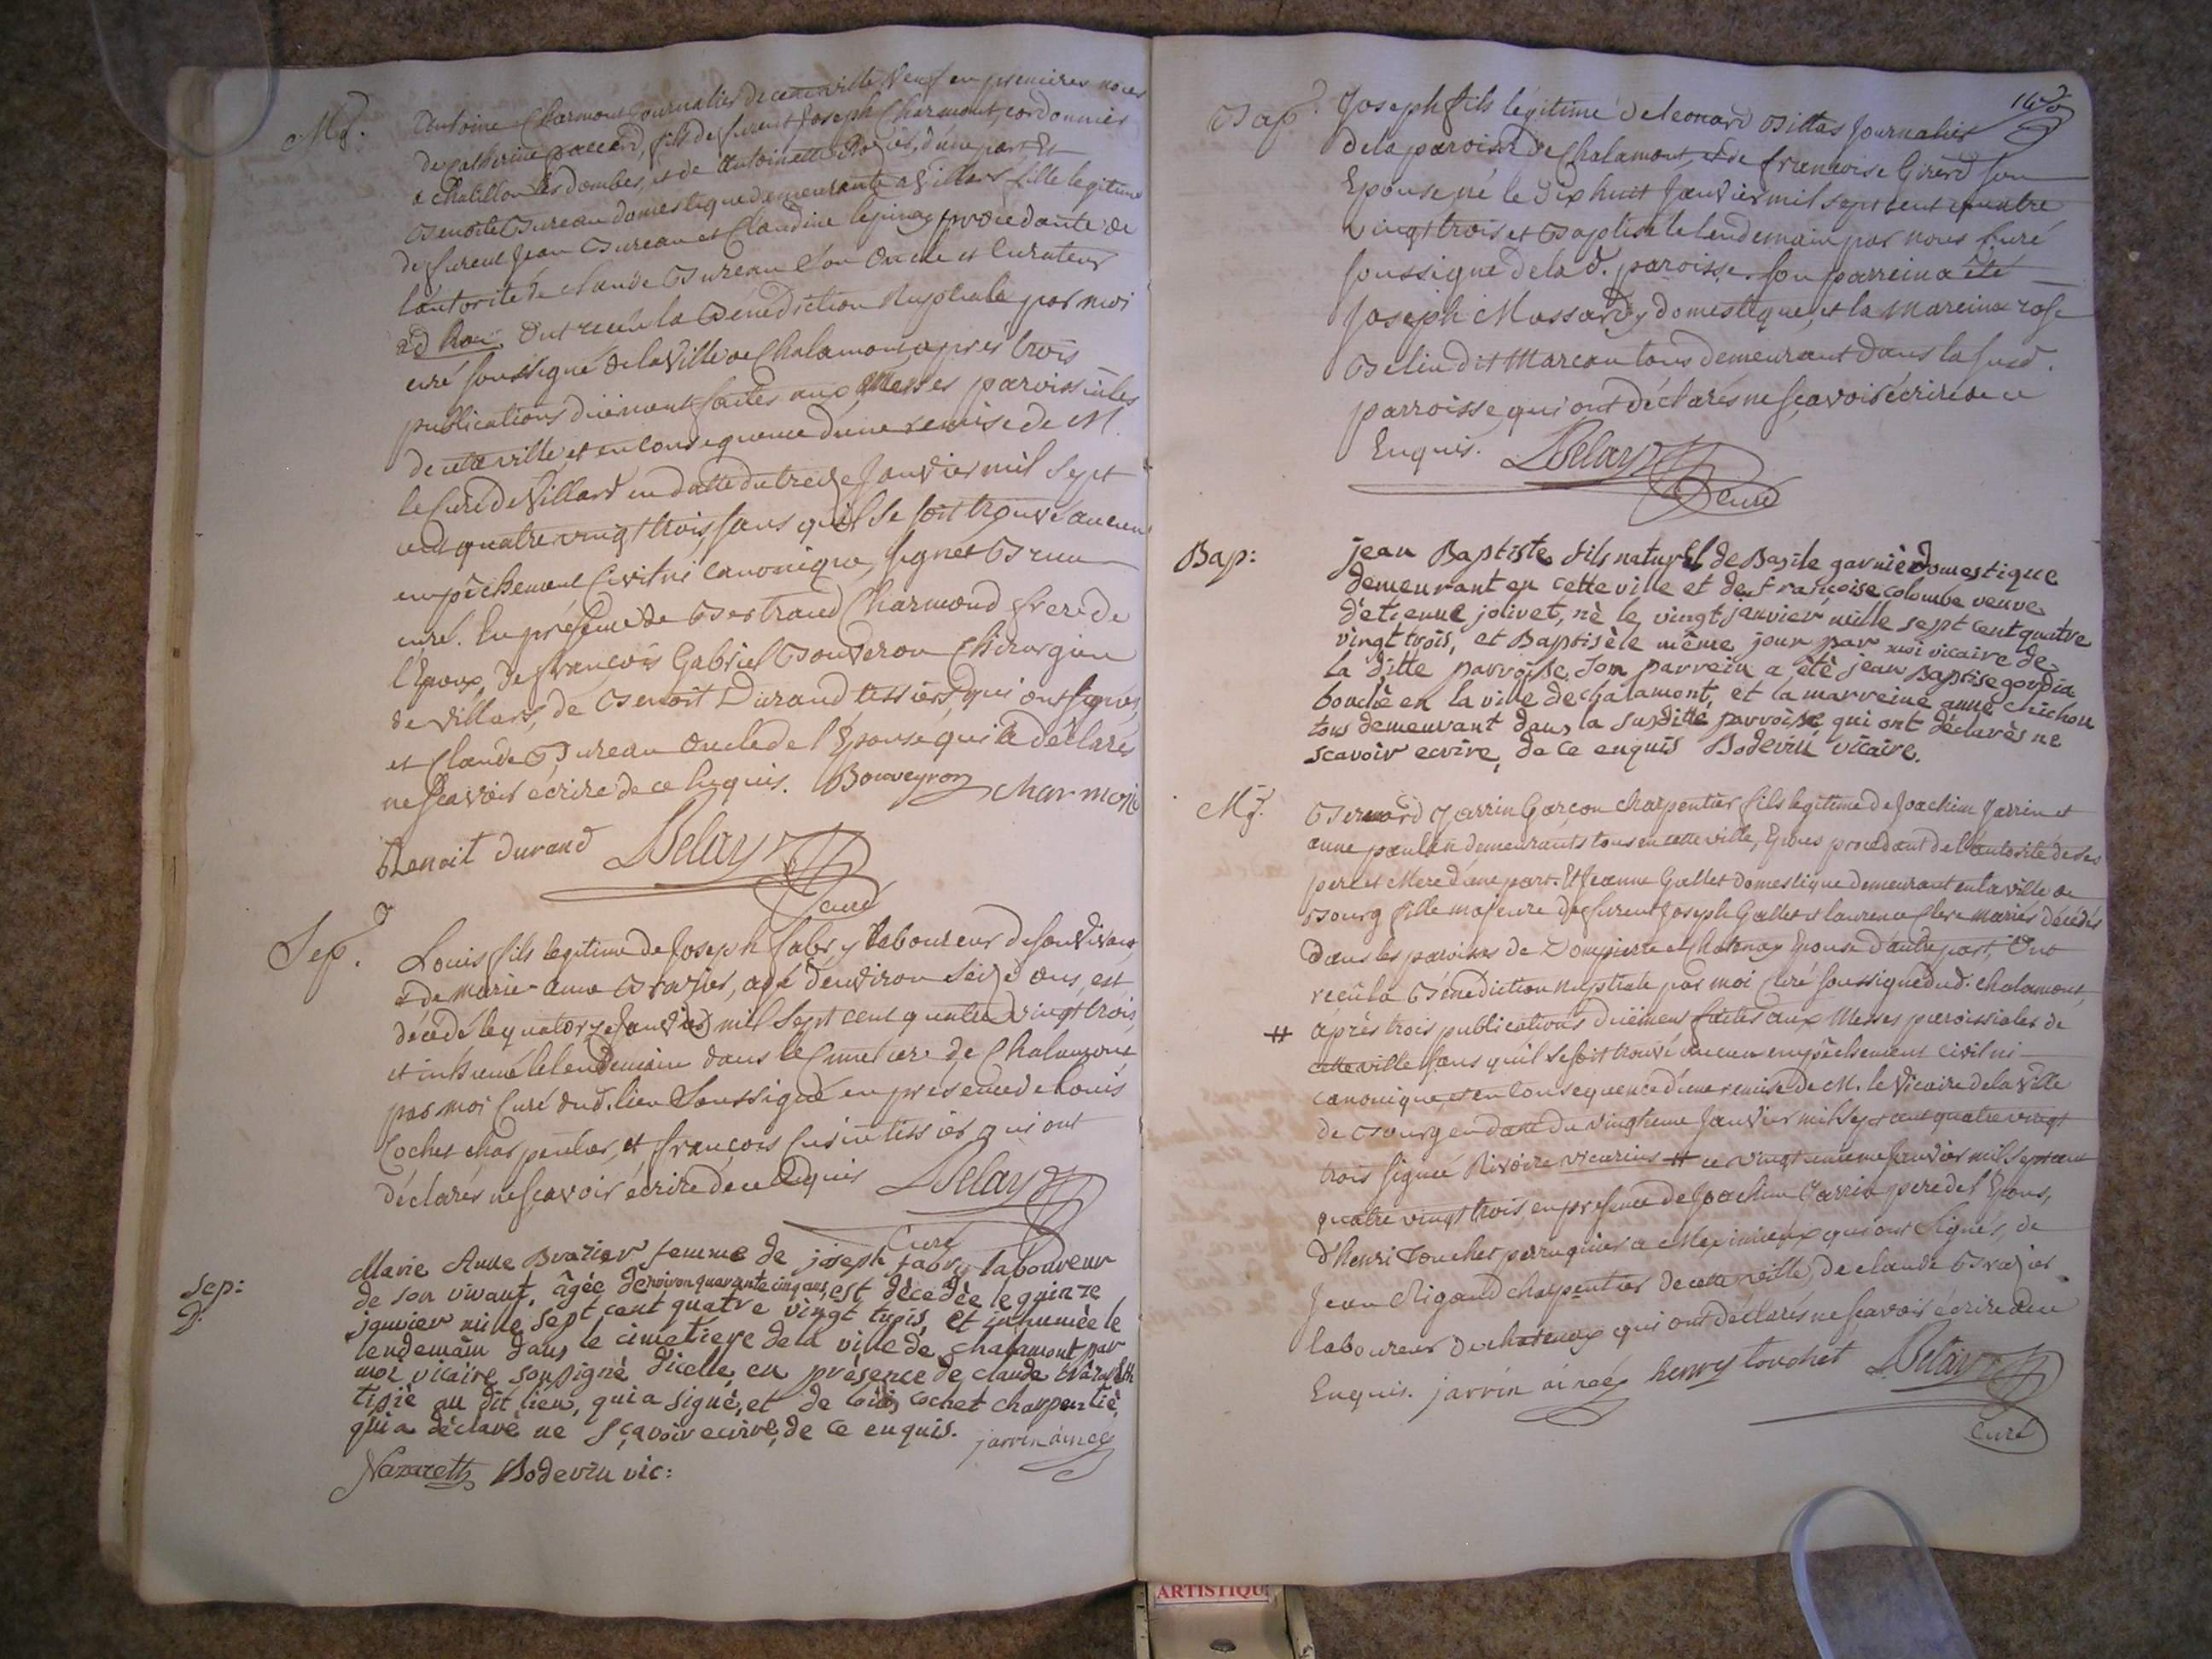 Mg. Antoine Charmont Journalier de cette ville Veuf en premieres noces
de Catherine, fils de furent Joseph Charmont, cordonnier
a Chatillon les dombes, et de Antoinette d'une part Et
Benoite Bureau domestique demeurante a Villars fille legitime
de furent Jean Bureau et Claudine lepinay procedante de
l'autorité de Claude Bureau Son Oncle et Curateur
Ont recûs la Bénédiction Nuptiale par moi
curé soussigné de la Ville de Chalamont après trois
publications dûëment faites aux Messes paroissiales
de cette ville, et en consequence d'une remise de M.
le Curé de Villars en datte du treize Janvier mil sept
cent quatre vingt trois, sans qu'il se soit trouvé aucun
empêchement Civil ni canonique, signée Brun
curé. En présence de Bertrand Charmond frere de
l'Epoux, de françois Gabriel Bouveron Chirurgien
de Villars, de Benoit Durand tessier, qui ont signés,
et Claude Bureau Oncle de l'Epouse qui a déclaré
ne sçavoir écrire de ce Enquis. Bouveyron charmont
Benoit durand Delay
curé
Sep. Louis fils legitime de Joseph fabry laboureur de son vivant,
& de marie-anne Brazier, agé d'environ seize ans, est
décédé le quatorze Janvier mil sept cent quatre vingt trois,
et inhumé le lendemain dans le Cimetiere de Chalamont
par moi Curé dud. lieu Soussigné en présence de Louis
Cochet charpentier, et françois tissier qui ont
déclarés ne sçavoir écrire de ce Enquis Delay
Curé
Sep: Marie Anne Brazier femme de joseph fabry laboureur
de son vivant, âgée d'environ quarante cinq ans, est dècedèe le quinze
janvier mille sept cent quatre vingt trois, et inhumèe le
lendemain dans le cimetiere de la ville de chalamont par
moi vicaire soussignè d'icelle, en prèsence de claude Nazareth
tissiè au dit lieu, qui a signè, et de loüis cochet charpentiè,
qui a dèclarè ne sçavoir ecrire, de ce enquis. jarrin ainée
Nazareth Bodevin vic:
Bap. Joseph fils légitime de leonard Billas Journalier
de la paroisse de Chalamont, et de francoise Girerd son
Epouse né le dix huit Janvier mil sept cent quatre
vingt trois et Baptisé le lendemain par nous Curé
soussigné de la d. paroisse. Son parrein a été
Joseph Massard, domestique, et la Mareine rose
Belin dit Marcau tous demeurant dans la susd.
parroisse, qui ont déclarés ne sçavoir écrire de ce
Enquis. Delay
Curé
Bap: jean Baptiste fils naturel de Basile garniè domestique
demeurant en cette ville et de francoise colombe veuve
d'etienne jolivet, nè le vingt janvier mille sept cent quatre
vingt trois, et Baptisè le même jour par moi vicaire de
la ditte parroisse. Son parrein a ètè jean Baptise gordia
bouchè en la ville de chalamont, et la marreine anne chichon
tous demeurant dans la susditte parroisse, qui ont dèclarès ne
scavoir ecrire, de ce enquis Bodevin vicaire.
Mg. Bernard Jarrin Garçon charpentier fils legitime de Joachim Jarrin et
anne paulin demeurants tous en cette ville, Epoux procedant de l'autorité de ses
pere et Mere d'une part. Et Jeanne Gallet domestique demeurant en la ville de
Bourg fille majeure de furent Joseph Gallet et laurence Clerc mariés décédés
dans les paroisses de Dompierre et Chatenay Epouse d'autre part, Ont
recû la Bénédiction nuptiale par moi Curé soussigné dud. chalamont,
# après trois publications dûëment faites aux Messes paroissiales de
cette ville sans qu'il se soit trouvé aucun empêchement civil ni
canonique, et en consequence d'une remise de M. le Vicaire de la ville
de Bourg en date du vingtieme Janvier mil sept cent quatre vingt
trois signée Rivoire vicarius # ce vingt unieme Janvier mil sept cent
quatre vingt trois, en présence de Joachim Jarrin pere de l'Epoux,
d'henri Touchet perruquier a Meximieux qui ont signés, de
Jean Rigaud charpentier de cette ville, de claude Brazier
laboureur de chatenay qui ont déclarés ne scavoir écrire de ce
Enquis. jarrin ainée henry touchet Delay
Curé
ARTISTIQU